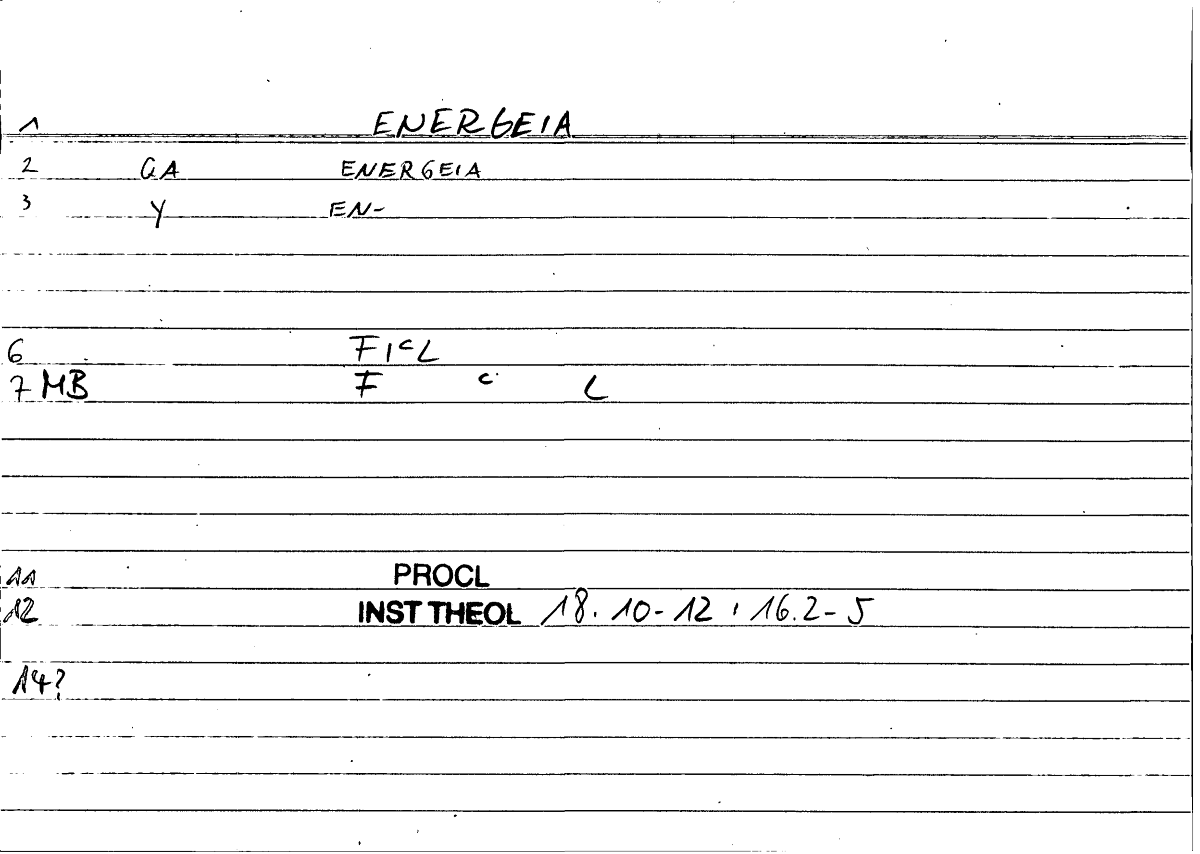 1 ENERGEIA
2 GA ENERGEIA
3 Y EN-
6 FICL
7 MB F C L
11 PROCL
12 INST THEOL 18. 10-12 ; 16.2-5
14?